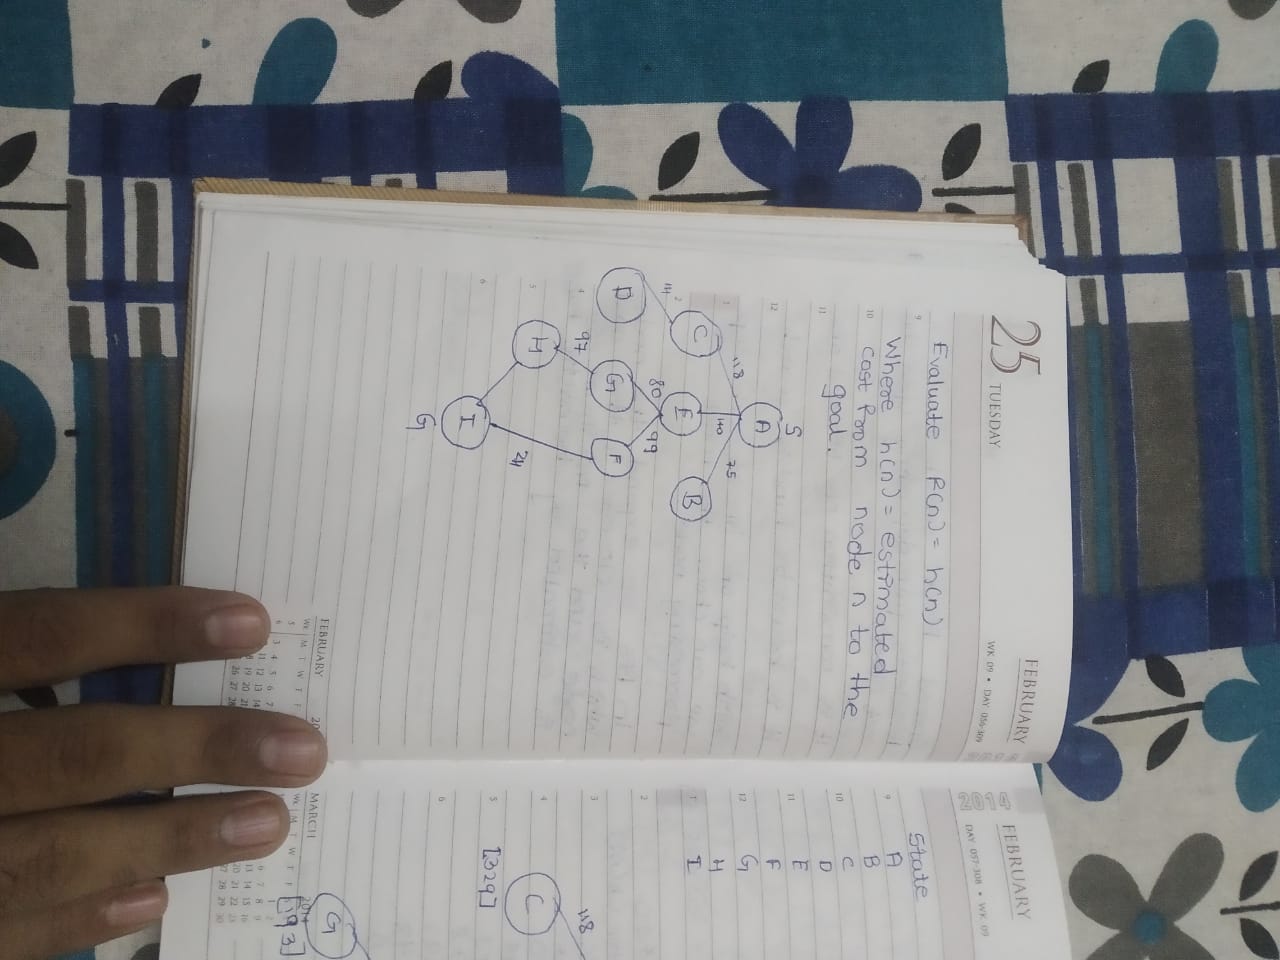 25 TUESDAY
FEBRUARY
WK 09 • DAY 056-309
Evaluate f(n) = h(n)
Where h(n) = estimated
cost from node n to the
goal.
S
A
118
140
75
C
E
B
80
99
D
G
F
97
H
I
G
9
10
11
12
1
2
4
5
6
FEBRUARY
Wk M T W T F
5
6 3 4 5 6 7
11 12 13 14
18 19 20 21
26 27 28
2014
FEBRUARY
DAY 057-308 • WK 09
State
A
B
C
D
E
F
G
H
I
9
10
11
12
1
2
3
4
5
6
118
C
[329]
G
MARCH
2014
Wk M T W T F
1 2
6 7 8 9
13 14 15 16
20 21 22 23
27 28 29 30